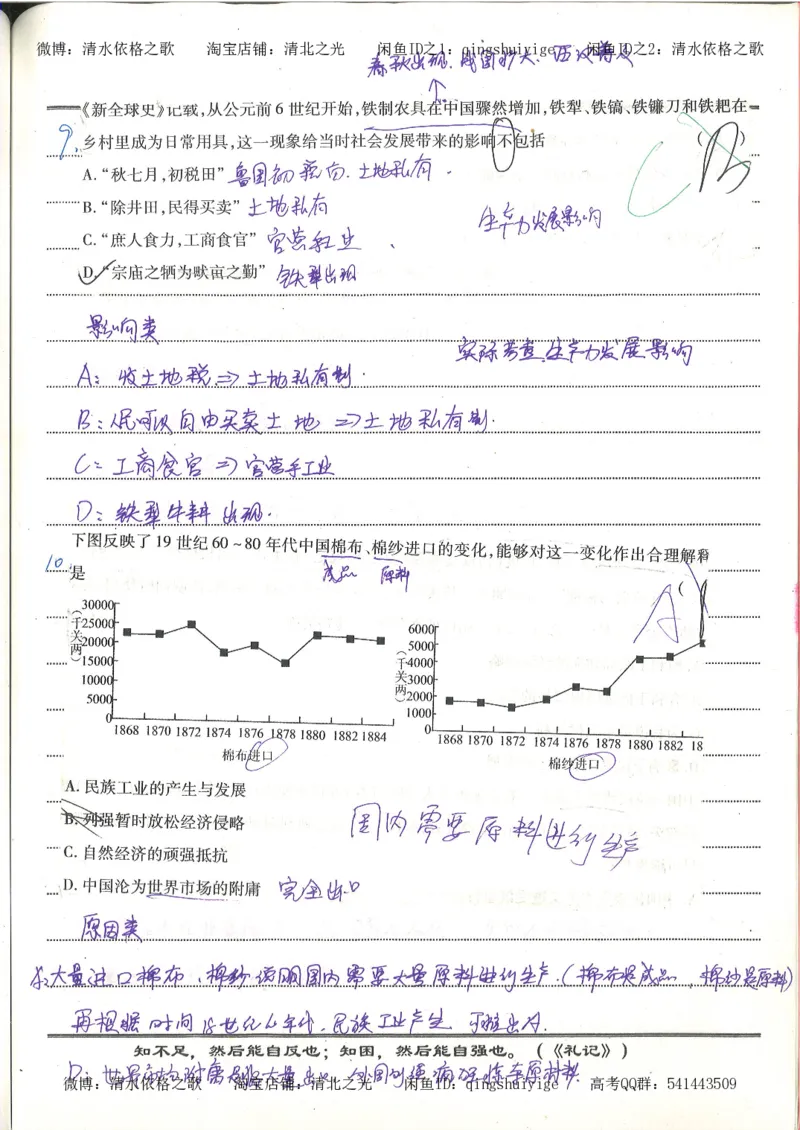 微博：清水依格之歌 淘宝店铺：清北之光 闲鱼ID之1：qingshuiyige 闲鱼ID之2：清水依格之歌
春秋出现.战国扩大.西汉普及
《新全球史》记载,从公元前6世纪开始,铁制农具在中国骤然增加,铁犁、铁镐、铁镰刀和铁耙在
9.
乡村里成为日常用具,这一现象给当时社会发展带来的影响不包括 ( )
C B
A.“秋七月,初税田” 鲁国初税亩.土地私有.
B.“除井田,民得买卖” 土地私有
生产力发展影响
C.“庶人食力,工商食官” 官营手工业
D.“宗庙之牺为畎亩之勤” 铁犁出现
影响类
实际考查生产力发展影响
A：收土地税⇒土地私有制.
B：人民可以自由买卖土地⇒土地私有制.
C：工商食官⇒官营手工业
D：铁犁牛耕出现.
下图反映了19世纪60~80年代中国棉布、棉纱进口的变化,能够对这一变化作出合理解释
10.
是 成品 原料 (
A
30000
25000
20000
15000
10000
5000
0
(千关两)
1868 1870 1872 1874 1876 1878 1880 1882 1884
棉布进口
6000
5000
4000
3000
2000
1000
0
(千关两)
1868 1870 1872 1874 1876 1878 1880 1882 18
棉纱进口
A.民族工业的产生与发展
B.列强暂时放松经济侵略
国内需要原料进行生产
C.自然经济的顽强抵抗
D.中国沦为世界市场的附庸 完全出口
原因类
大量进口棉布、棉纱说明国内需要大量原料进行生产.(棉布是成品,棉纱是原料)
再根据时间 年代.民族工业产生 可推出A.
知不足，然后能自反也；知困，然后能自强也。（《礼记》）
D：世界市场附庸是 大量出口
微博：清水依格之歌 淘宝店铺：清北之光 闲鱼ID：qingshuiyige 高考QQ群：541443509